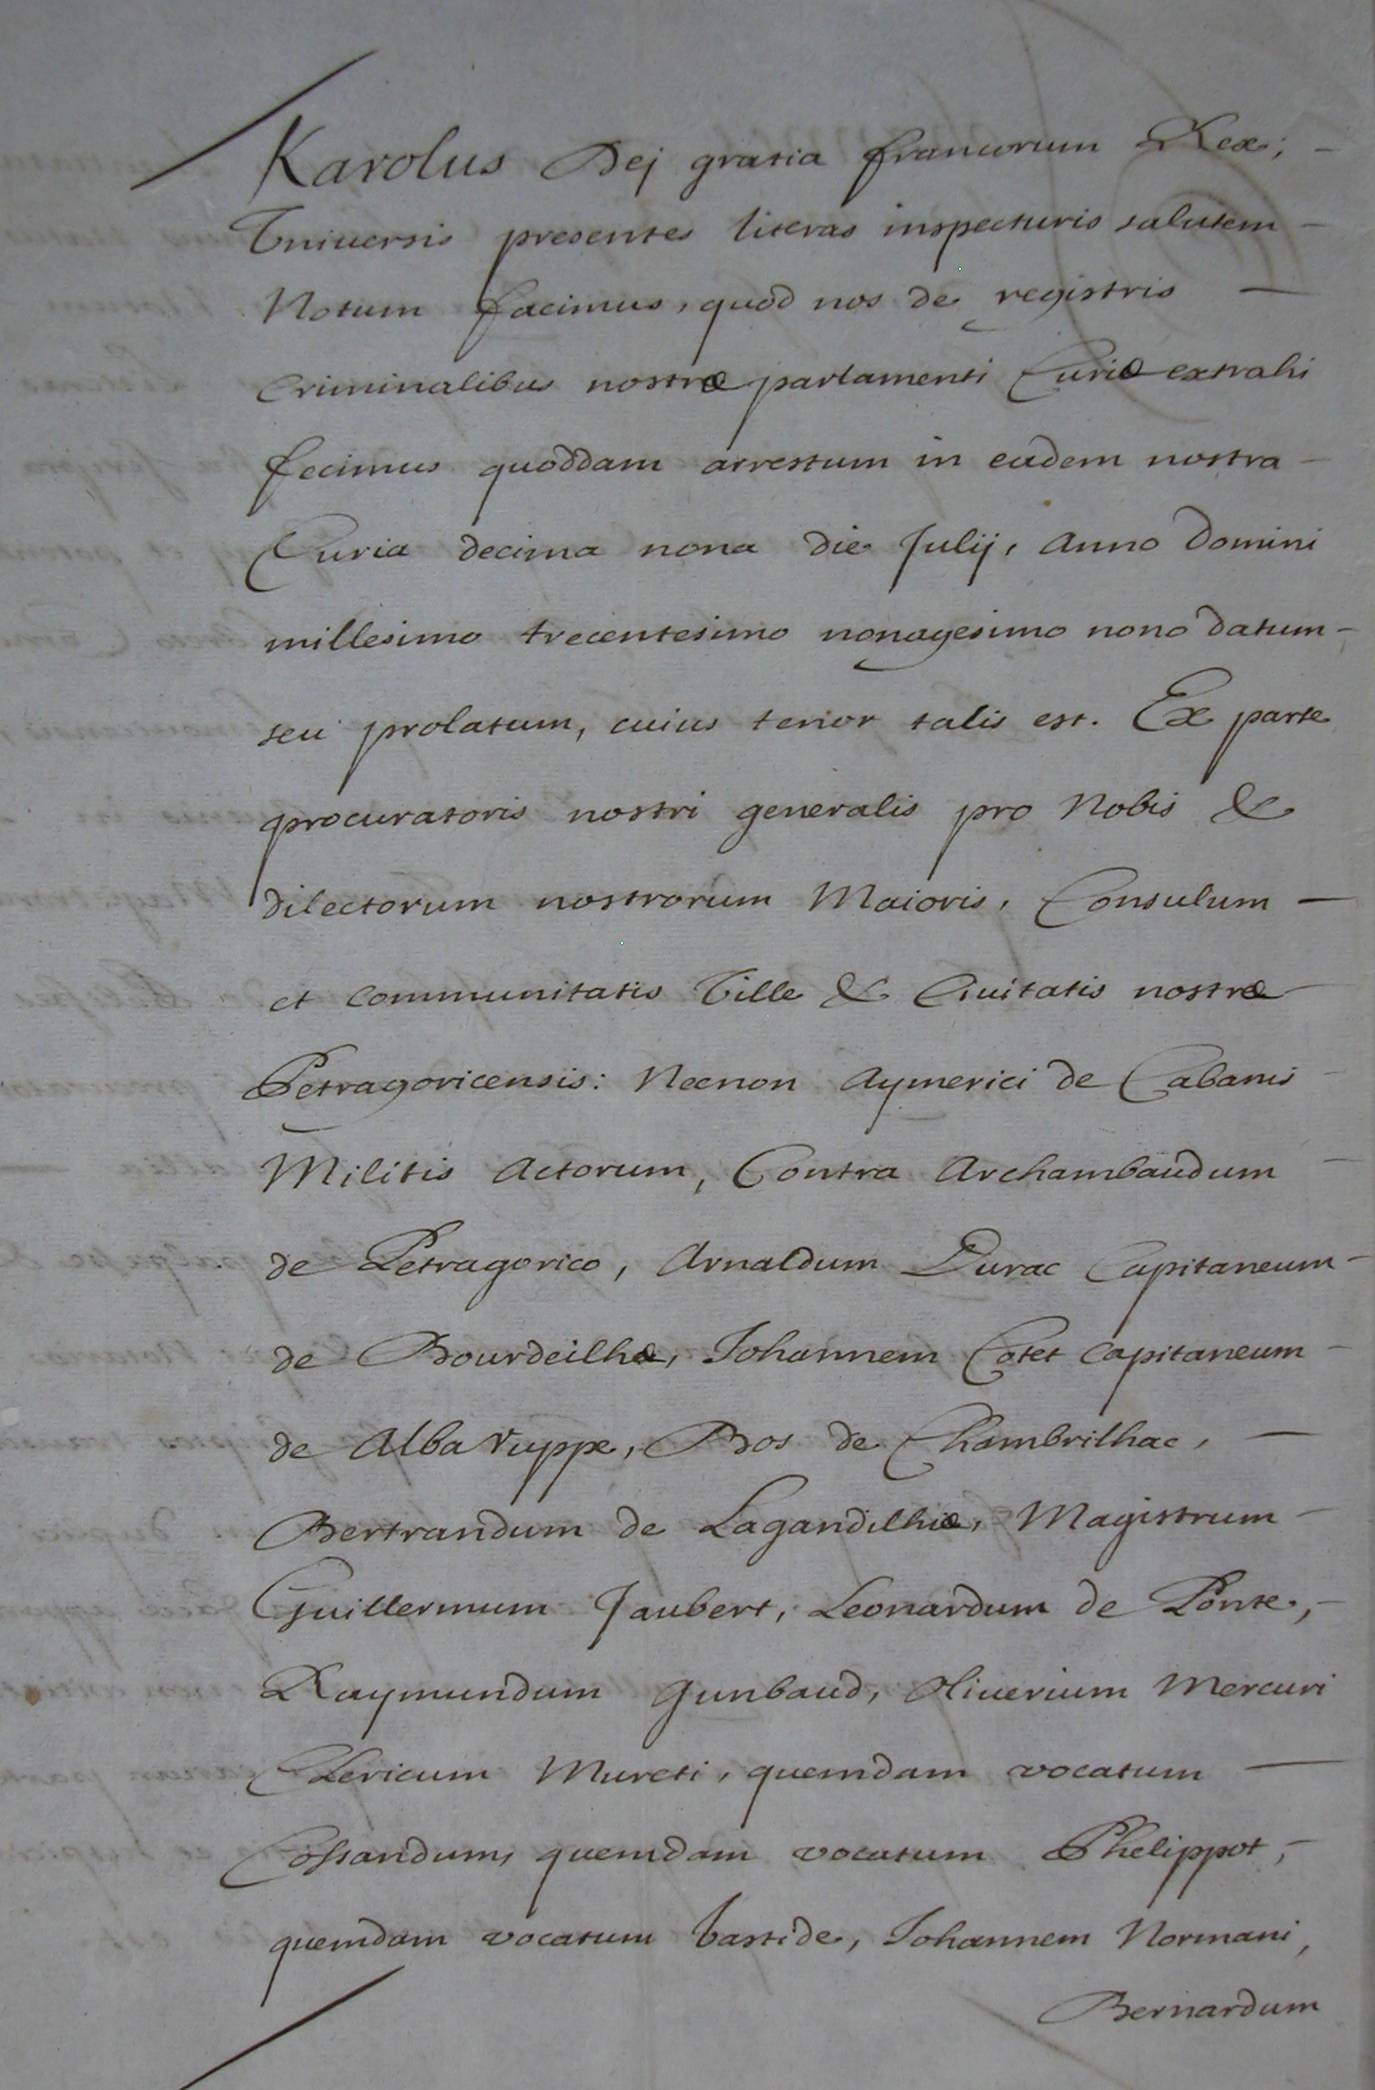 Karolus Dej gratia francorum Rex;
Vniuersis presentes literas inspecturis salutem
Notum facimus, quod nos de registris
Criminalibus nostræ parlamenti Curiæ extrahi
fecimus quoddam arrestum in eadem nostra
Curia decima nona die Julij, anno Domini
millesimo trecentesimo nonagesimo nono datum
seu prolatum, cuius tenor talis est. Ex parte
procuratoris nostri generalis pro Nobis &
dilectorum nostrorum Maioris, Consulum
et Communitatis Ville & Ciuitatis nostræ
Petragoricensis: Necnon Aymerici de Cabanis
Militis Actorum, Contra Archambaudum
de Petragorico, Arnaldum Durac Capitaneum
de Bourdeilhæ, Johannem Cotet Capitaneum
de Alba ruppe, Bos de Chambrilhac,
Bertrandum de Lagandilhiæ, Magistrum
Guillermum Jaubert, Leonardum de Ponte,
Raymundum Gunbaud, Oliuerium Mercuri
Clericum Mureti, quemdam vocatum
Cossandum, quemdam vocatum Phelippot,
quemdam vocatum bastide, Johannem Normani,
Bernardum